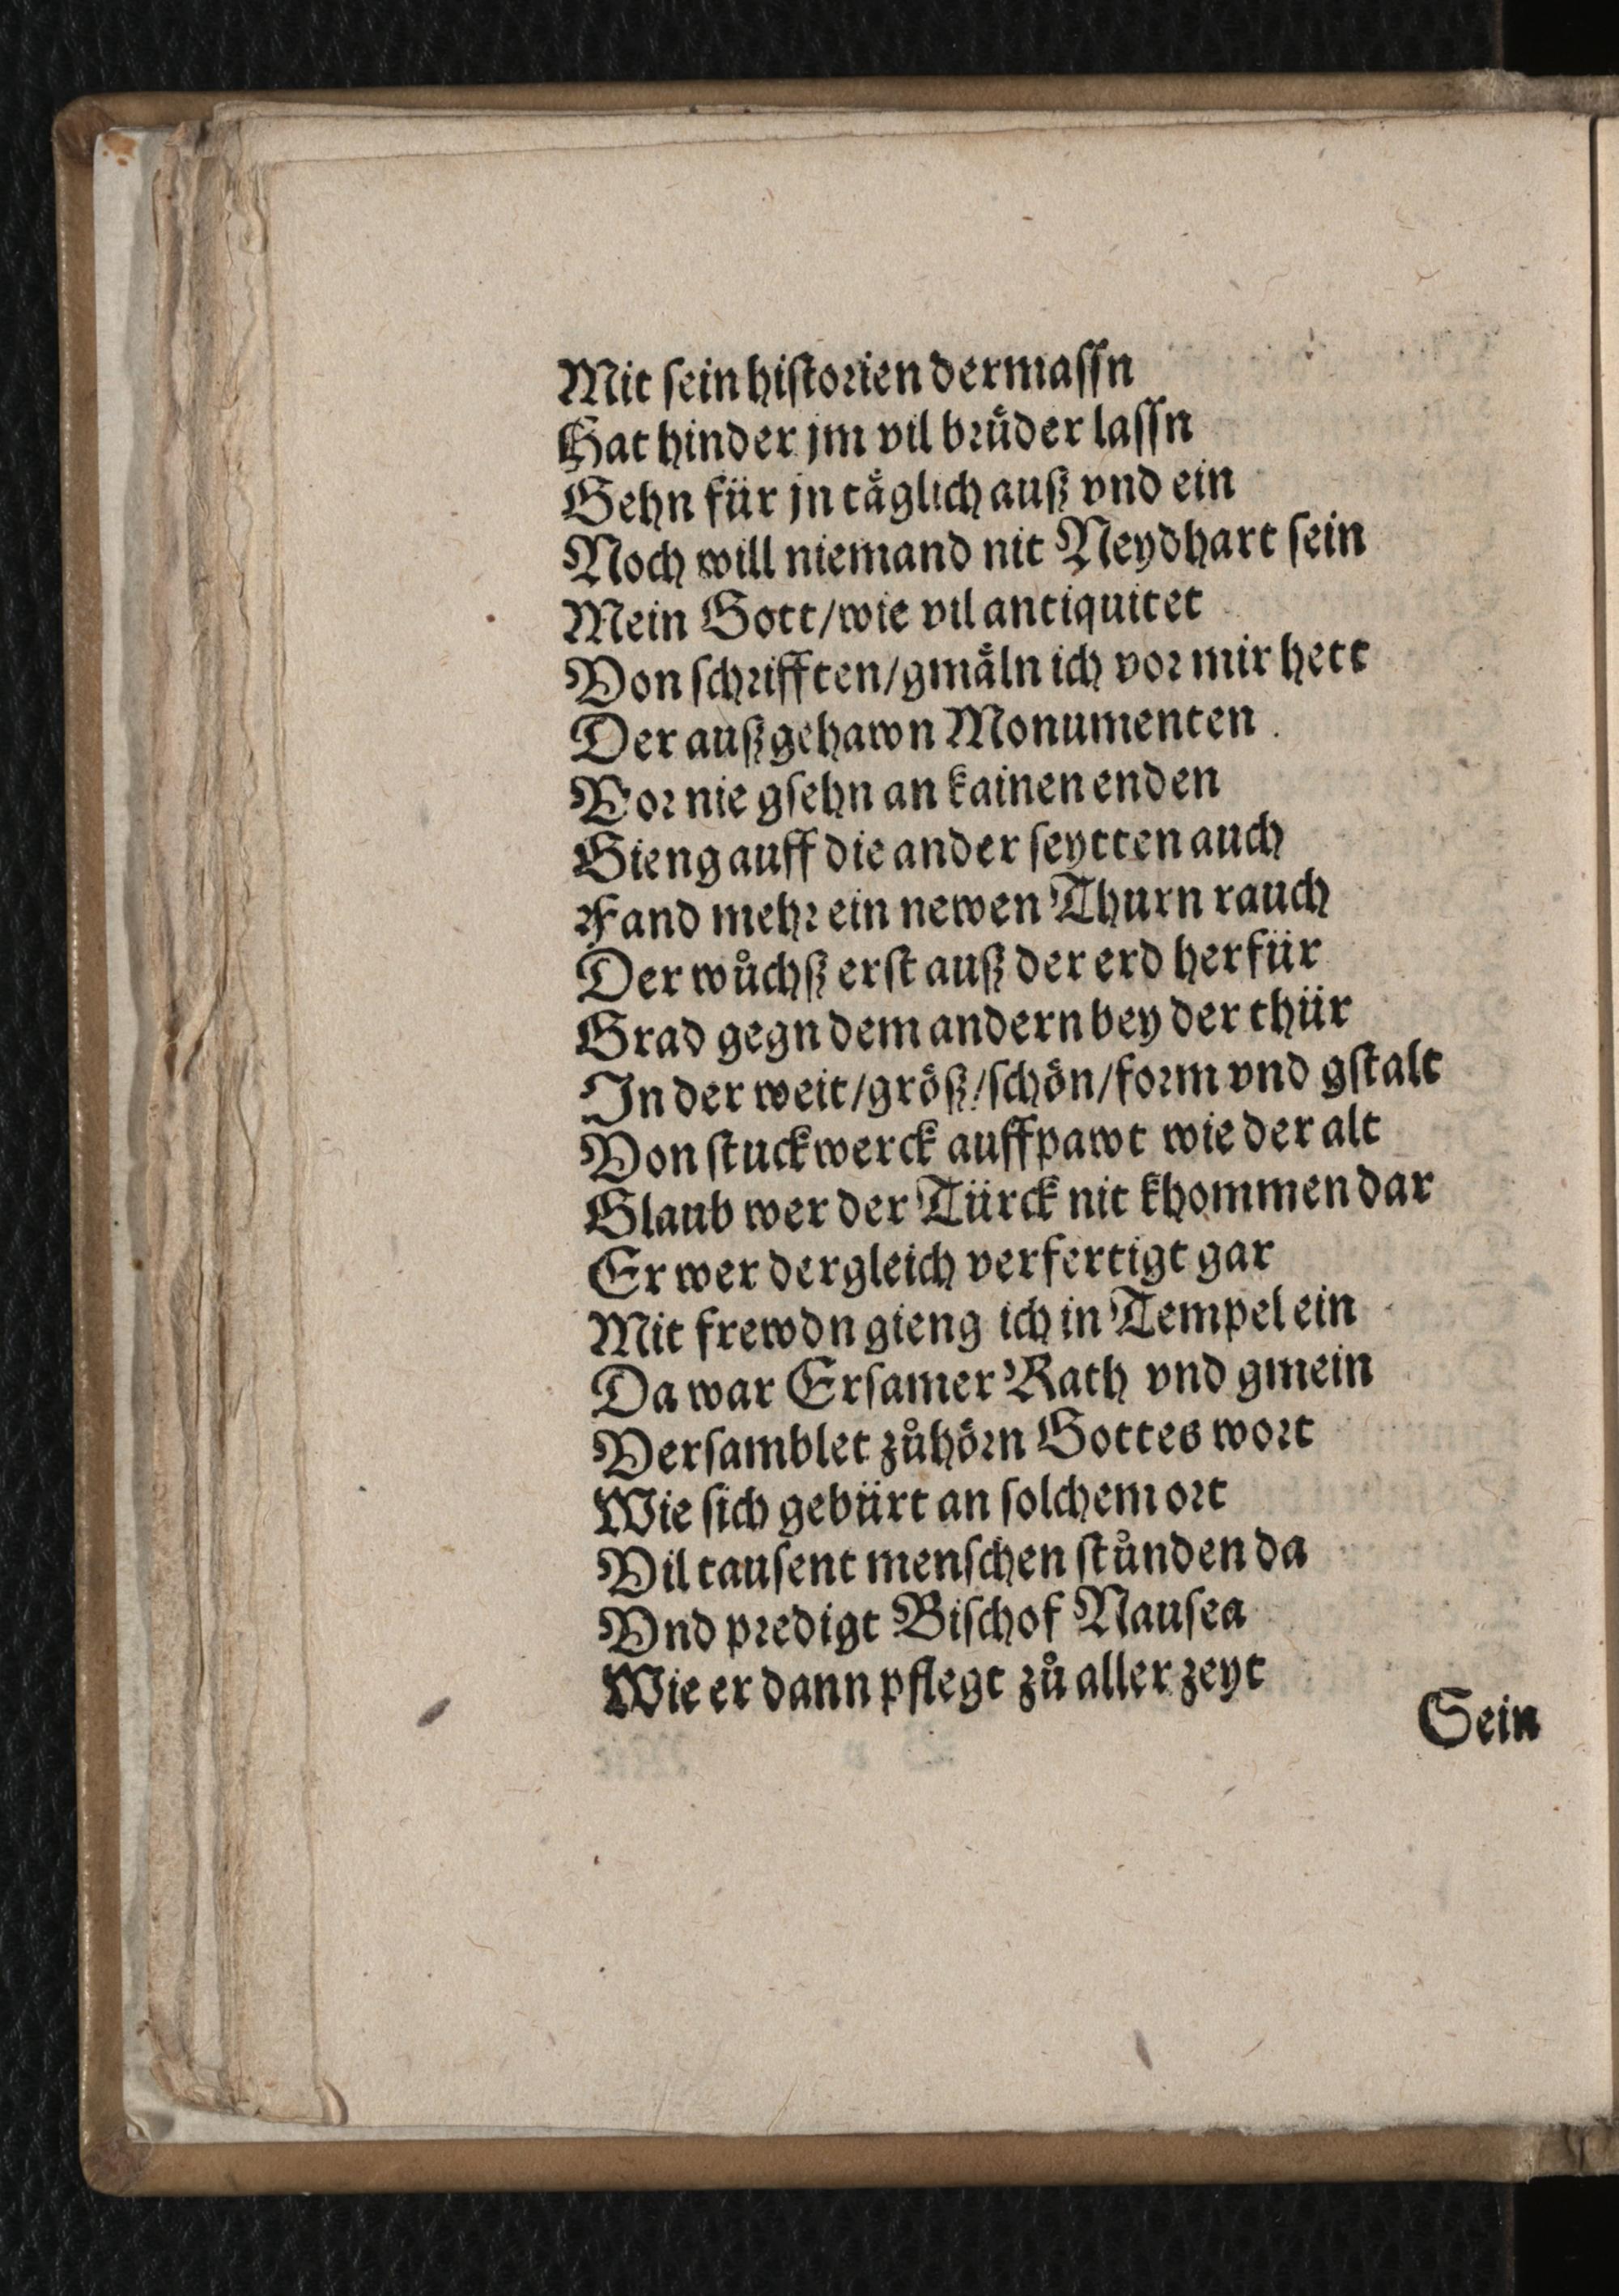 Mit sein historien dermassn
Hat hinder jm vil brůder lassn
Gehn für jn täglich auß vnd ein
Noch will niemand nit Neydhart sein
Mein Gott/wie vil antiquitet
Von schrifften/gmäln ich vor mir hett
Der außgehawn Monumenten
Vor nie gsehn an kainen enden
Gieng auff die ander seytten auch
Fand mehr ein newen Thurn rauch
Der wůchß erst auß der erd herfür
Grad gegn dem andern bey der thür
In der weit/größ/schön/form vnd gstalt
Von stuckwerck auffpawt wie der alt
Glaub wer der Türck nit khommen dar
Er wer dergleich verfertigt gar
Mit frewdn gieng ich in Tempel ein
Da war Ersamer Rath vnd gmein
Versamblet zůhörn Gottes wort
Wie sich gebürt an solchem ort
Vil tausent menschen stůnden da
Vnd predigt Bischof Nausea
Wie er dann pflegt zů aller zeyt
Sein